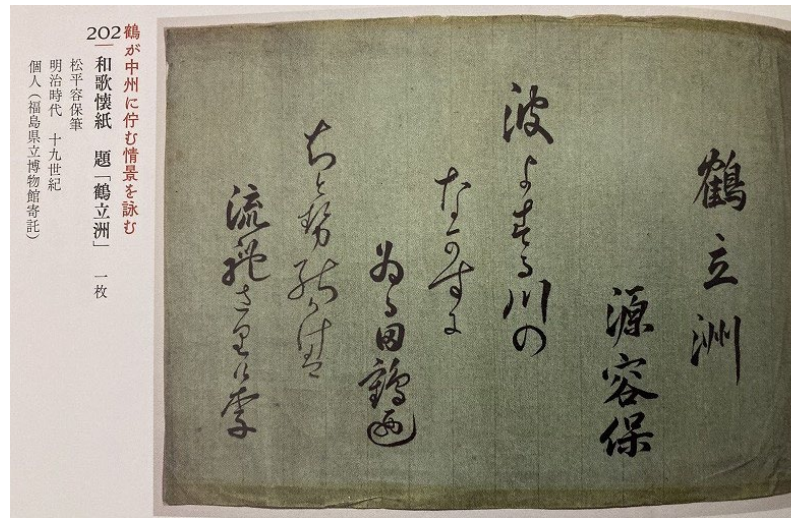 鶴立洲
源容保
波よする川の
なかすに
為る田鶴廼
ちと勢能かけは
流禮さりけ李
鶴が中州に佇む情景を詠む
202 和歌懐紙 題「鶴立洲」 一枚
松平容保筆
明治時代 十九世紀
個人（福島県立博物館寄託）